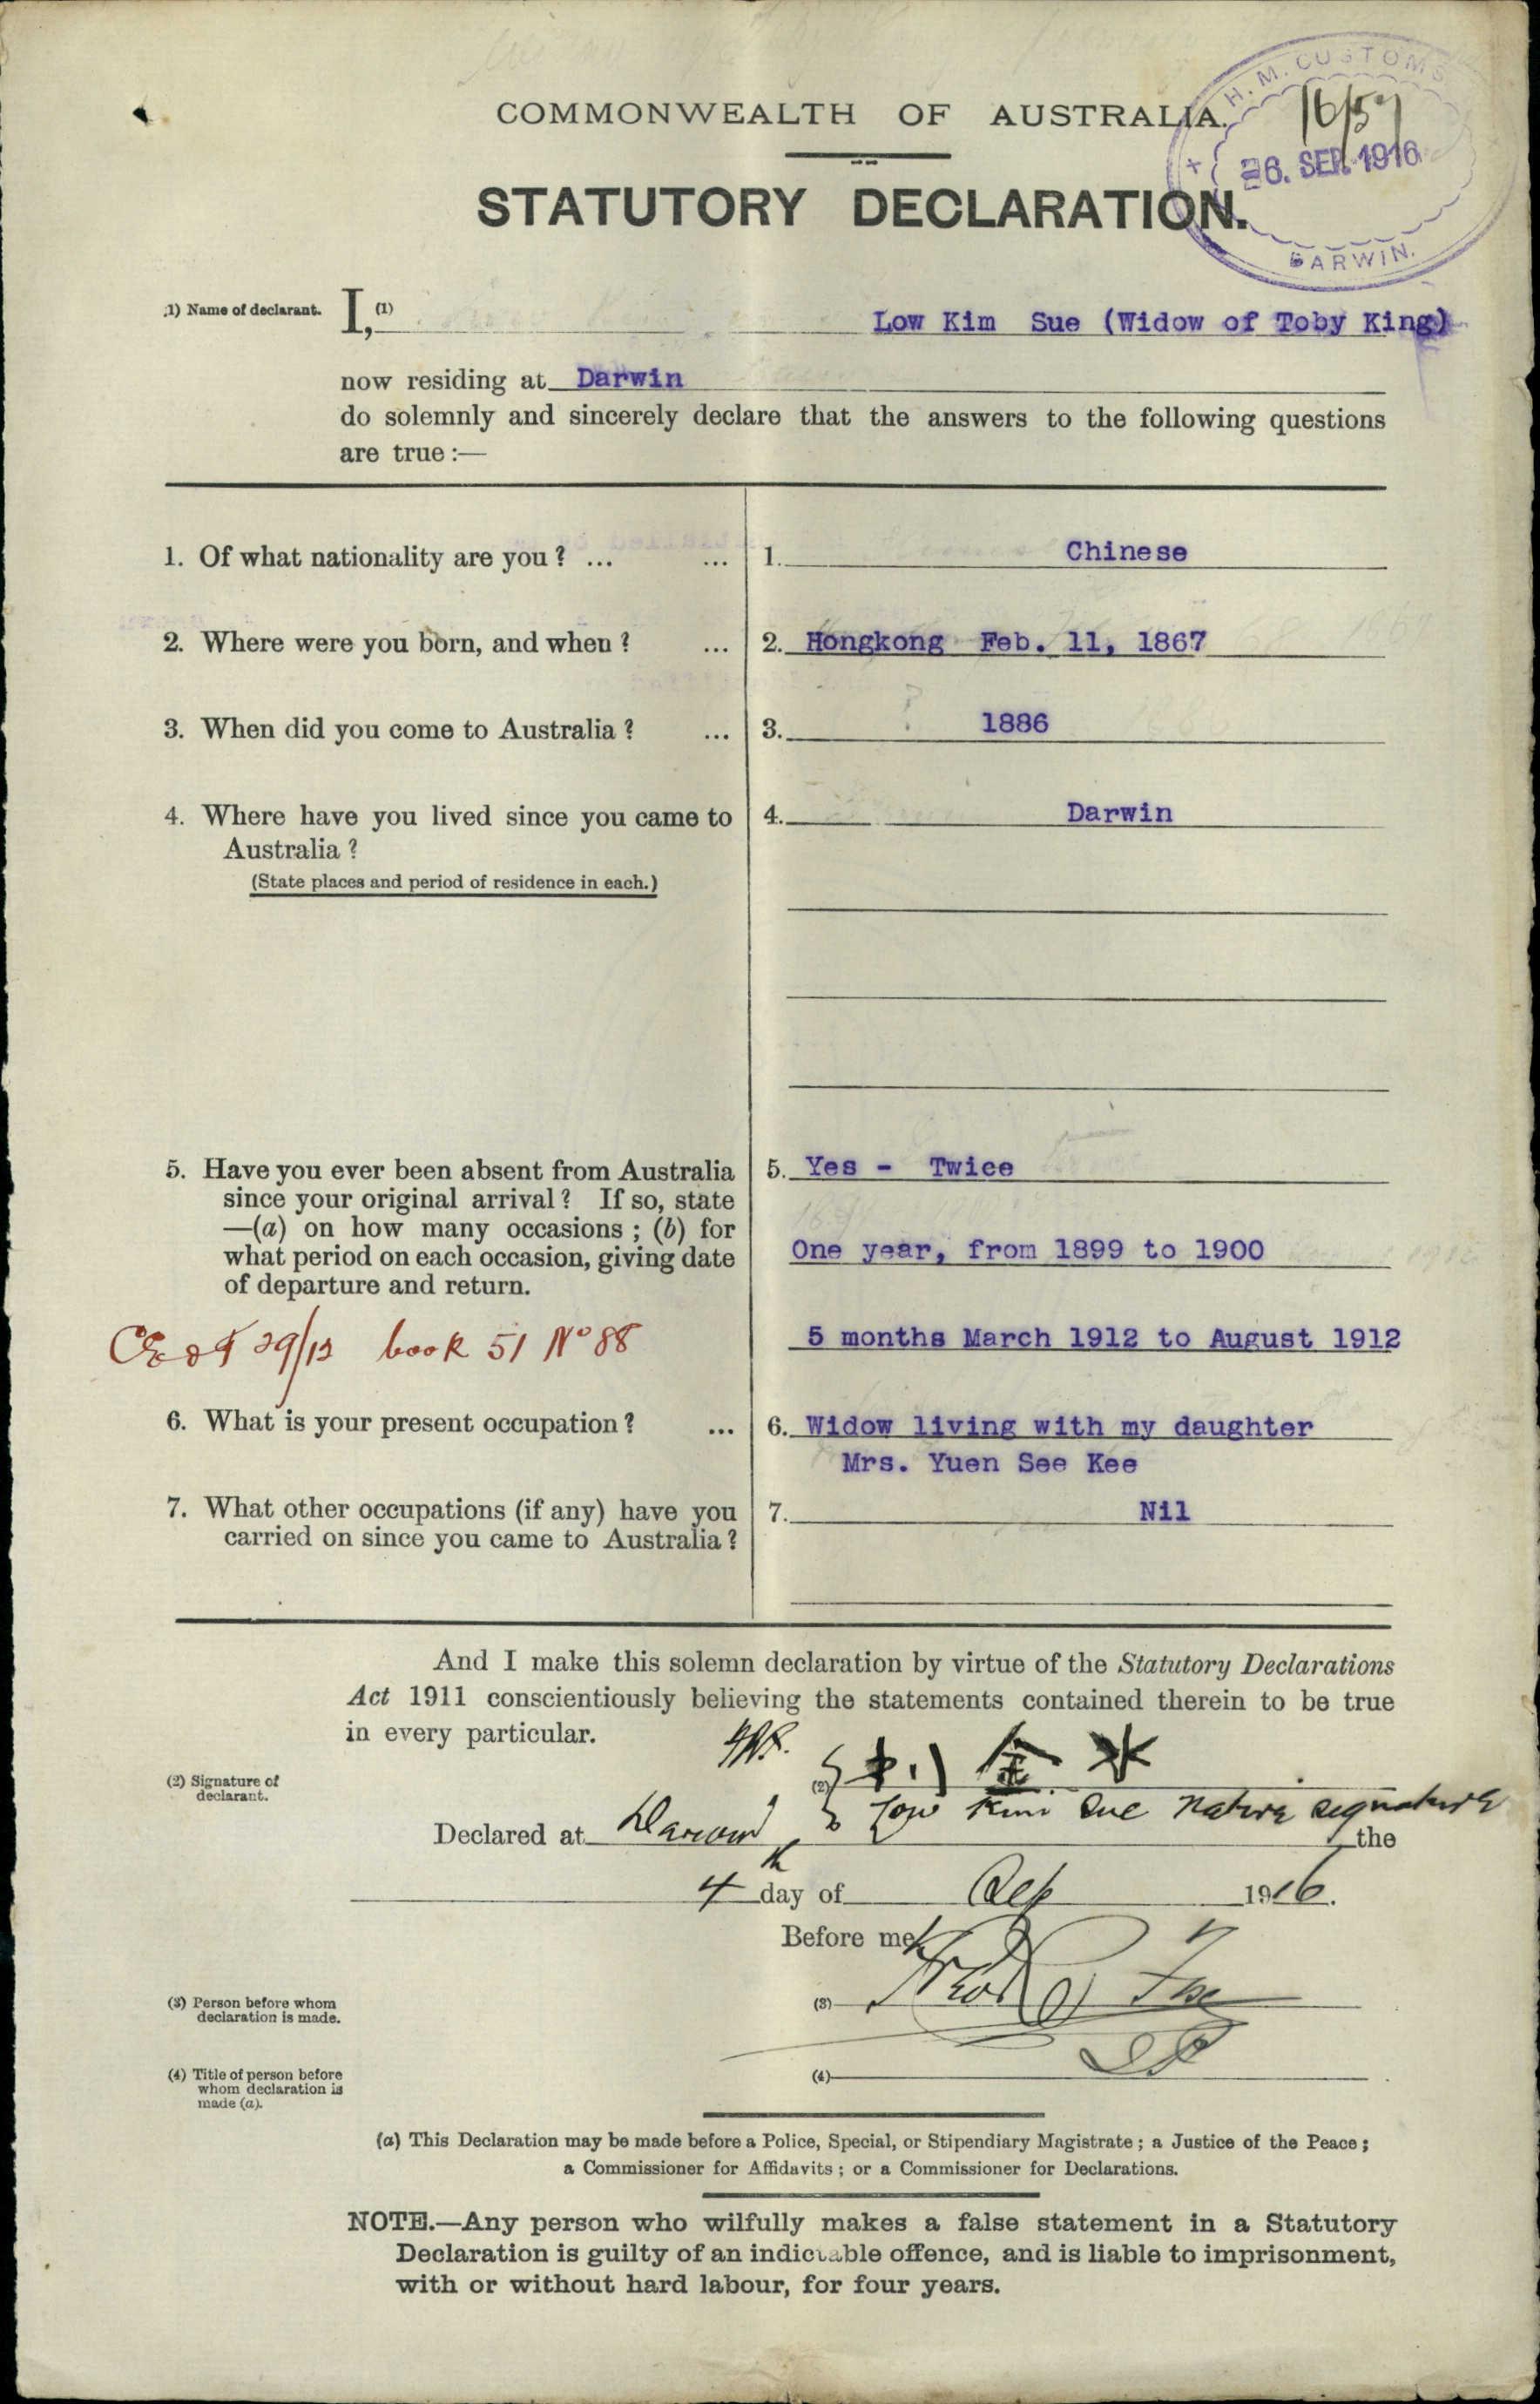 COMMONWEALTH OF AUSTRALIA.
H. M. CUSTOMS
16/57
26. SEP. 1916
DARWIN.
STATUTORY DECLARATION.
(1) Name of declarant. I, (1) Low Kim Sue (Widow of Toby King)
now residing at Darwin
do solemnly and sincerely declare that the answers to the following questions
are true :—
1. Of what nationality are you ? ... ... 1. Chinese
2. Where were you born, and when ? ... 2. Hongkong Feb. 11, 1867
3. When did you come to Australia ? ... 3. 1886
4. Where have you lived since you came to 4. Darwin
Australia ?
(State places and period of residence in each.)
5. Have you ever been absent from Australia 5. Yes - Twice
since your original arrival ? If so, state
—(a) on how many occasions ; (b) for
what period on each occasion, giving date One year, from 1899 to 1900
of departure and return.
29/12 book 51 No 88 5 months March 1912 to August 1912
6. What is your present occupation ? ... 6. Widow living with my daughter
Mrs. Yuen See Kee
7. What other occupations (if any) have you 7. Nil
carried on since you came to Australia ?
And I make this solemn declaration by virtue of the Statutory Declarations
Act 1911 conscientiously believing the statements contained therein to be true
in every particular.
(2) Signature of
declarant.
(2) 金水
Low Kim Sue Native signature
Declared at Darwin the
4th day of Sep 1916.
Before me
(3) Person before whom
declaration is made.
(3)
(4) Title of person before
whom declaration is
made (a).
(4) JP
(a) This Declaration may be made before a Police, Special, or Stipendiary Magistrate ; a Justice of the Peace ;
a Commissioner for Affidavits ; or a Commissioner for Declarations.
NOTE.—Any person who wilfully makes a false statement in a Statutory
Declaration is guilty of an indictable offence, and is liable to imprisonment,
with or without hard labour, for four years.